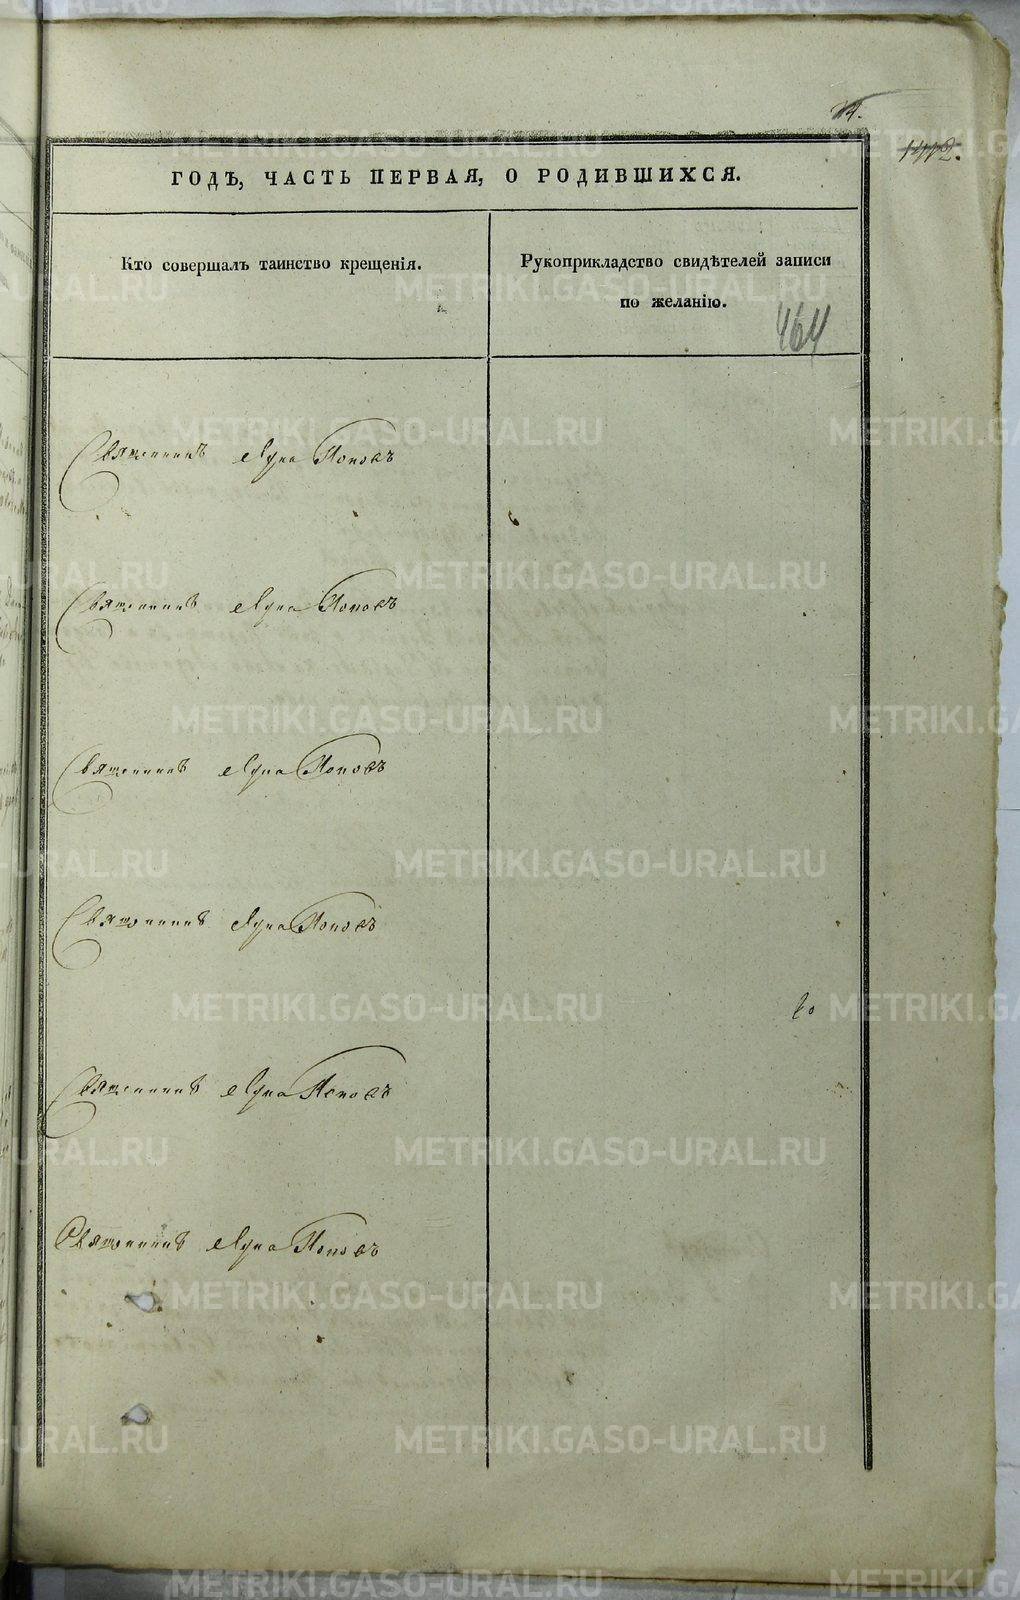 ГОДЪ, ЧАСТЬ ПЕРВАЯ, О РОДИВШИХСЯ.
Кто совершалъ таинство крещенія.
Рукоприкладство свидѣтелей записи
по желанію.
464
Священникъ Лука Поповъ
Священникъ Лука Поповъ
Священникъ Лука Поповъ
Священникъ Лука Поповъ
Священникъ Лука Поповъ
Священникъ Лука Поповъ
METRIKI.GASO-URAL.RU